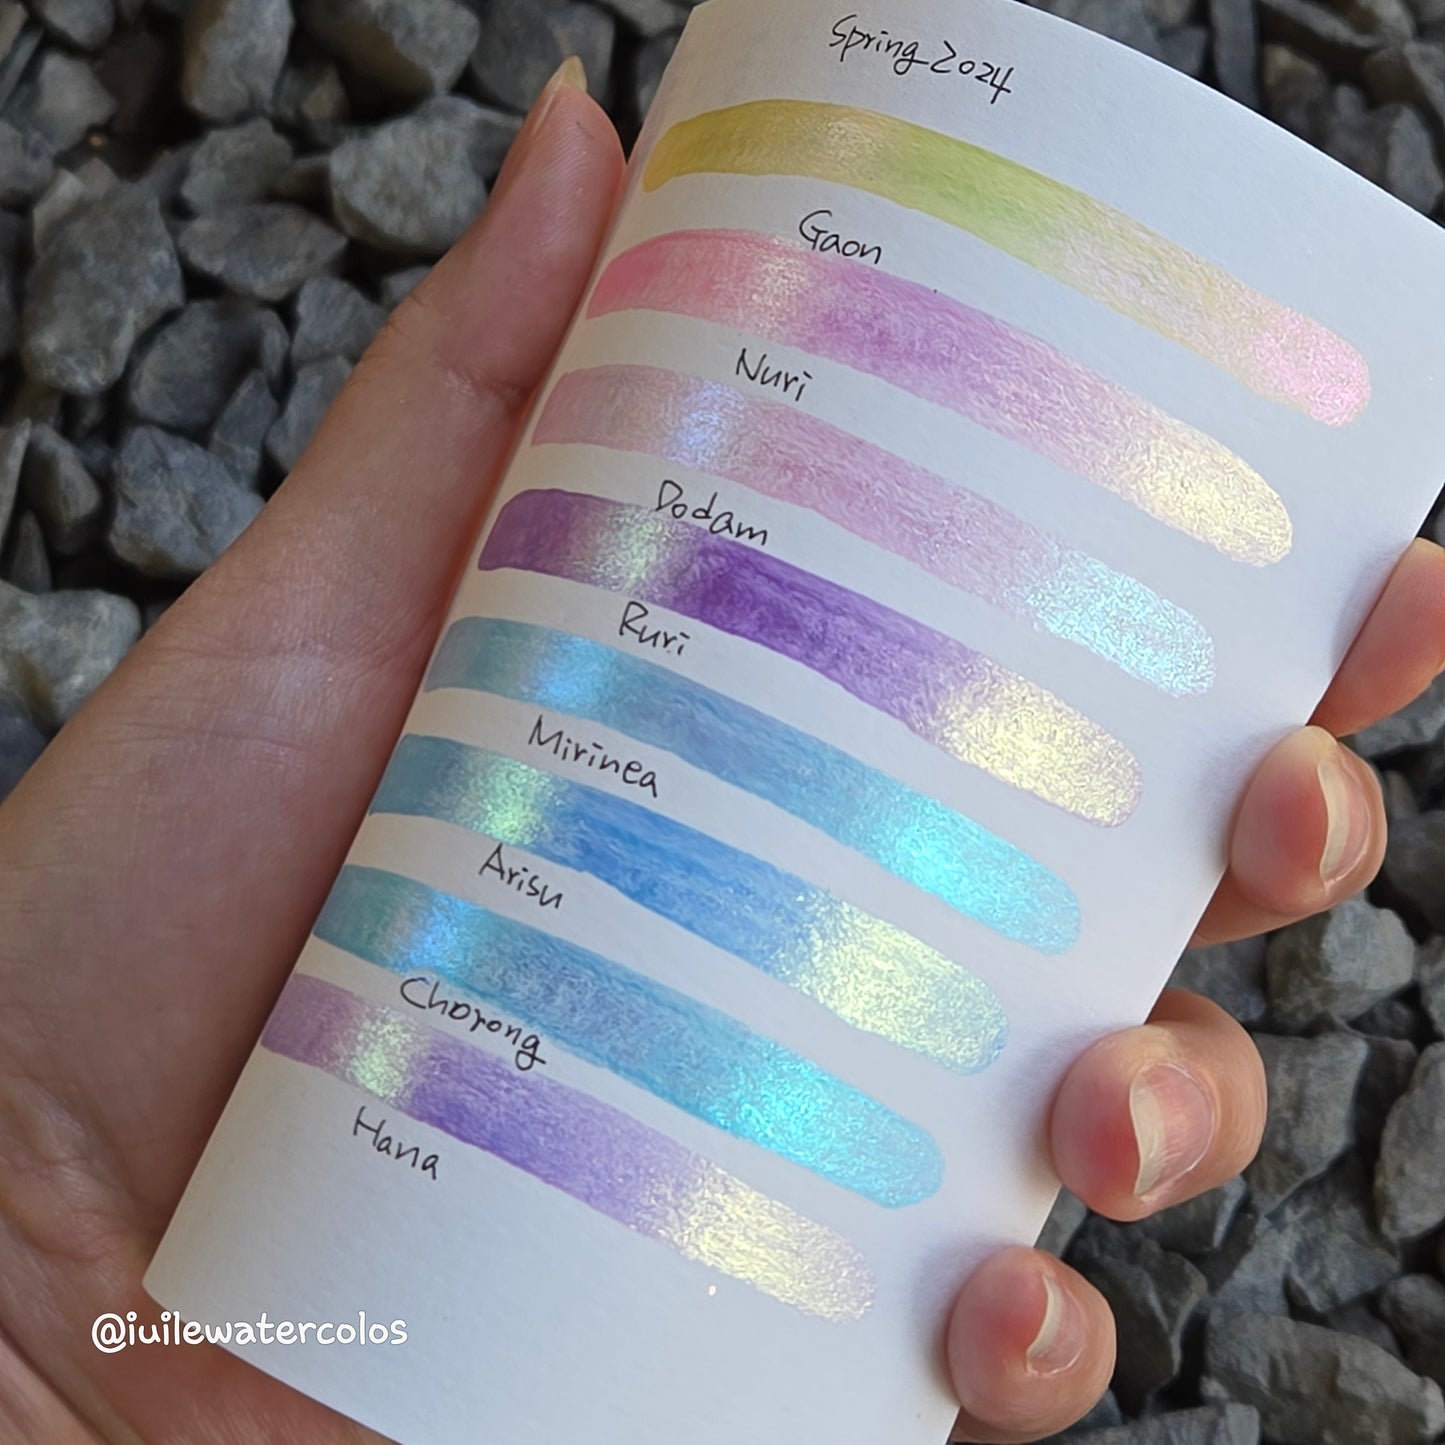 Spring 2024
Gaon
Nuri
Dodam
Ruri
Mirinea
Arisu
Chorong
Hana
@iuilewatercolos